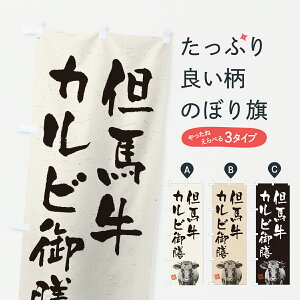 但馬牛
カルビ御膳
たっぷり
良い柄
のぼり旗
やったね
えらべる3タイプ
A
B
C
但馬牛
カルビ御膳
但馬牛
カルビ御膳
但馬牛
カルビ御膳